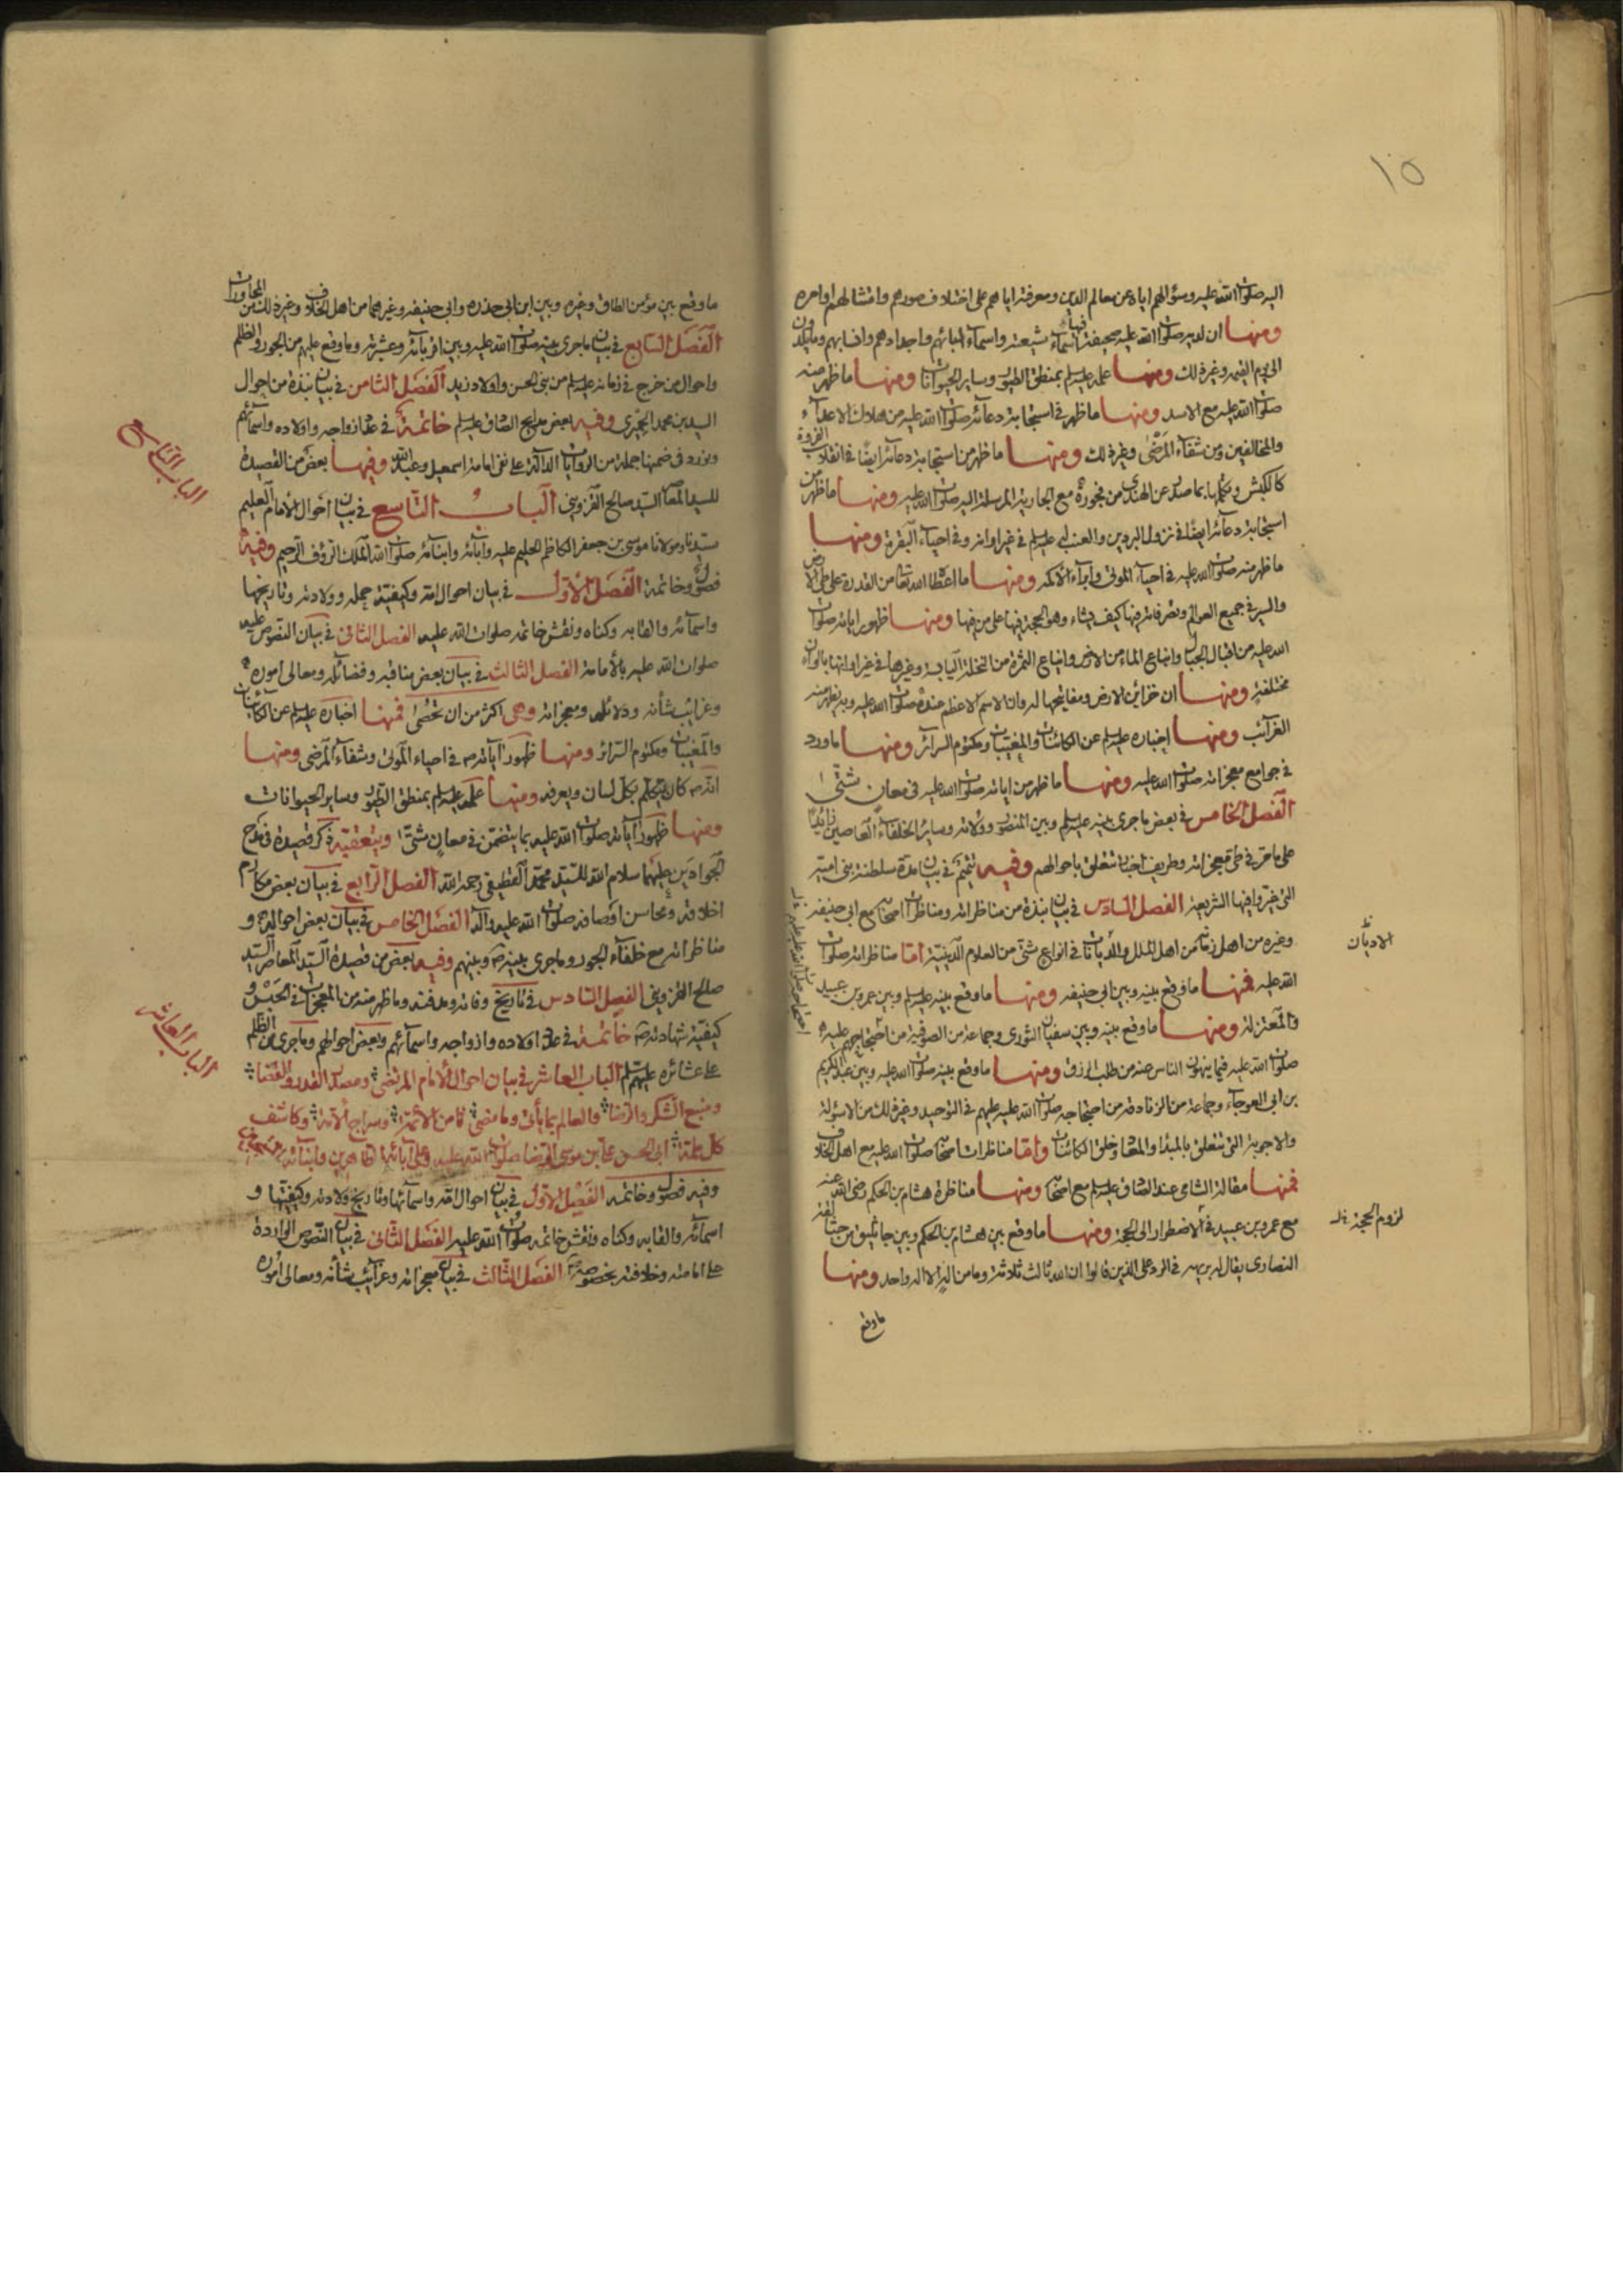 ١٥
اليه صلوات الله عليه وسؤالهم اياه عن معالم الدين ومعرفته اياهم على اختلاف صورهم وامتثالهم اوامره
ومنها ان لديه صلوات الله عليه صحيفة فيها اسماء شيعته واسماء ابائهم واجدادهم وانسابهم وما يلدون
الى يوم القيمة وغير ذلك ومنها علمه عليه السلم بمنطق الطيور وساير الحيوانات ومنها ما ظهر منه
صلوات الله عليه مع الاسد ومنها ما ظهر في استجابة دعائه صلوات الله عليه من هلاك الاعداء
والمخالفين ومن شفاء المرضى وغير ذلك ومنها ما ظهر من استجابة دعائه ايضا في انقلاب الفروة
كالكبش وتكلمها بما صدر عن الهندي من فجوره مع الجارية المرسلة اليه صلوات الله عليه ومنها ما ظهر من
استجابة دعائه ايضا في نزول البردين والعنب له عليه السلم في غير اوانه وفي احياء البقرة ومنها
ما ظهر منه صلوات الله عليه في احياء الموتى وابراء الاكمه ومنها ما اعطاه الله تعالى من القدرة على طي الارض
والسير في جميع العوالم وتصرفاته فيها كيف يشاء وهو الحجة فيها على من فيها ومنها ظهور اياته صلوات
الله عليه من اقبال الجبال وانباع الماء من الارض واتباع الثمرة من النخلة اليابسة وغيرها في غير اوانها بالوان
مختلفة ومنها ان خزائن الارض ومفاتيحها له وان الاسم الاعظم عنده صلوات الله عليه وبه يظهر منه
الغرائب ومنها اخباره عليه السلم عن الكائنات والمغيبات ومكتوم السرائر ومنها ما ورد
في جوامع معجزاته صلوات الله عليه ومنها ما ظهر من اياته صلوات الله عليه في معان شتى
الفصل الخامس في بعض ما جرى بينه عليه السلم وبين المنصور وولاته وساير الخلفاء الغاصبين زائدا
على ما مر في طي معجزاته وطريف اخبار تتعلق باحوالهم وفيه تتميم في بيان مدة سلطنة بني امية
التي غيروا فيها الشريعة الفصل السادس في بيان نبذة من مناظراته ومناظرات اصحابه مع ابي حنيفة
وغيره من اهل زمانه من اهل الملل والديانات في انواع شتى من العلوم الدينية اما مناظراته صلوات
الاديان
الله عليه فمنها ما وقع بينه وبين ابي حنيفه ومنها ما وقع بينه عليه السلم وبين عمرو بن عبيد
والمعتزلة ومنها ما وقع بينه وبين سفيان الثوري وجماعة من الصوفية من احتجاجهم عليه
صلوات الله عليه فيما ينهون الناس عنه من طلب الرزق ومنها ما وقع بينه صلوات الله عليه وبين عبد الكريم
بن ابي العوجاء وجماعة من الزنادقة من احتجاجه صلوات الله عليه عليهم في التوحيد وغير ذلك من الاسئولة
والاجوبة التي تتعلق بالمبدا والمعاد وخلق الكائنات واما مناظرات اصحابه صلوات الله عليه مع اهل الخلاف
فمنها مقالة الشامي عند الصادق عليه السلم مع اصحابه ومنها مناظرة هشام بن الحكم رضي الله عنه
مع عمرو بن عبيد في الاضطرار الى الحجة ومنها ما وقع بين هشام بن الحكم وبين جاثليق من جثالقة
لزوم الحجة خل
النصارى يقال له بريهه في الرد على الذين قالوا ان الله ثالث ثلاثة وما من اله الا اله واحد ومنها
ما وقع
ما وقع بين مؤمن الطاق وغيره وبين ابن ابي حذره وابي حنيفه وغيرهما من اهل الخلاف وغير ذلك من المجاورات
الفصل السابع في بيان ما جرى بينه صلوات الله عليه وبين اقربائه وعشيرته وما وقع عليهم من الجور والظلم
واحوال من خرج في زمانه عليه السلم من بني الحسن واولاد زيد الفصل الثامن في بيان نبذة من احوال
السيد بن محمد الحميري وفيه بعض مدايح الصادق عليه السلم خاتمة في عدد ازواجه واولاده واسمائهم
ونورد في ضمنها جملة من الروايات الدالة على نفي امامة اسمعيل وعبد الله وفيها بعض من القصيدة
الباب التاسع
للسيد المعاصر السيد صالح القزويني الباب التاسع في بيان احوال الامام العليم
سيدنا ومولانا موسى بن جعفر الكاظم الحليم عليه وآبائه وابنائه صلوات الله الملك الرؤف الرحيم وفيه
فصول وخاتمة الفصل الاول في بيان احوال امه وكيفية حمله وولادته وتاريخها
واسمائه والقابه وكناه ونقش خاتمه صلوات الله عليه الفصل الثاني في بيان النصوص عليه
صلوات الله عليه بالامامة الفصل الثالث في بيان بعض مناقبه وفضائله ومعالي اموره
وغرائب شأنه ودلائله ومعجزاته وهي اكثر من ان تحصى فمنها اخباره عليه السلم عن الكائنات
والمغيبات ومكتوم السرائر ومنها ظهور آياته في احياء الموتى وشفاء المرضى ومنها
انه كان يتكلم بكل لسان ويعرفه ومنها علمه عليه السلم بمنطق الطيور وساير الحيوانات
ومنها ظهور آياته صلوات الله عليه بما يتضمن في معان شتى ويتعقبه ذكر قصيدة في مدح
الجوادين عليهما سلام الله للسيد محمد القطيفي رحمه الله الفصل الرابع في بيان بعض مكارم
اخلاقه ومحاسن اوصافه صلوات الله عليه وآله الفصل الخامس في بيان بعض احواله و
مناظراته مع خلفاء الجور وما جرى بينه وبينهم وفيه بعض من قصيدة السيد المعاصر السيد
صالح القزويني الفصل السادس في تاريخ وفاته ومدفنه وما ظهر منه من المعجزات في الحبس و
كيفية شهادته خاتمة في عدد اولاده وازواجه واسمائهم وبعض احوالهم وما جرى من الظلم
الباب العاشر
على عشائره عليهم السلم الباب العاشر في بيان احوال الامام المرتضى ومصدر القدر والقضا
ومنبع الشكر والرضا والعالم بما يأتي وما مضى ثامن الائمة وسراج الامة وكاشف
كل غمة ابي الحسن علي بن موسى الرضا صلوات الله عليه وعلى آبائه الطاهرين وابنائه
وفيه فصول وخاتمه الفصل الاول في بيان احوال امه واسمائها وتاريخ ولادته وكيفيتها و
اسمائه والقابه وكناه ونقش خاتمه صلوات الله عليه الفصل الثاني في بيان النصوص الواردة
على امامته وخلافته بخصوصه الفصل الثالث في بيان معجزاته وغرائب شأنه ومعالي اموره